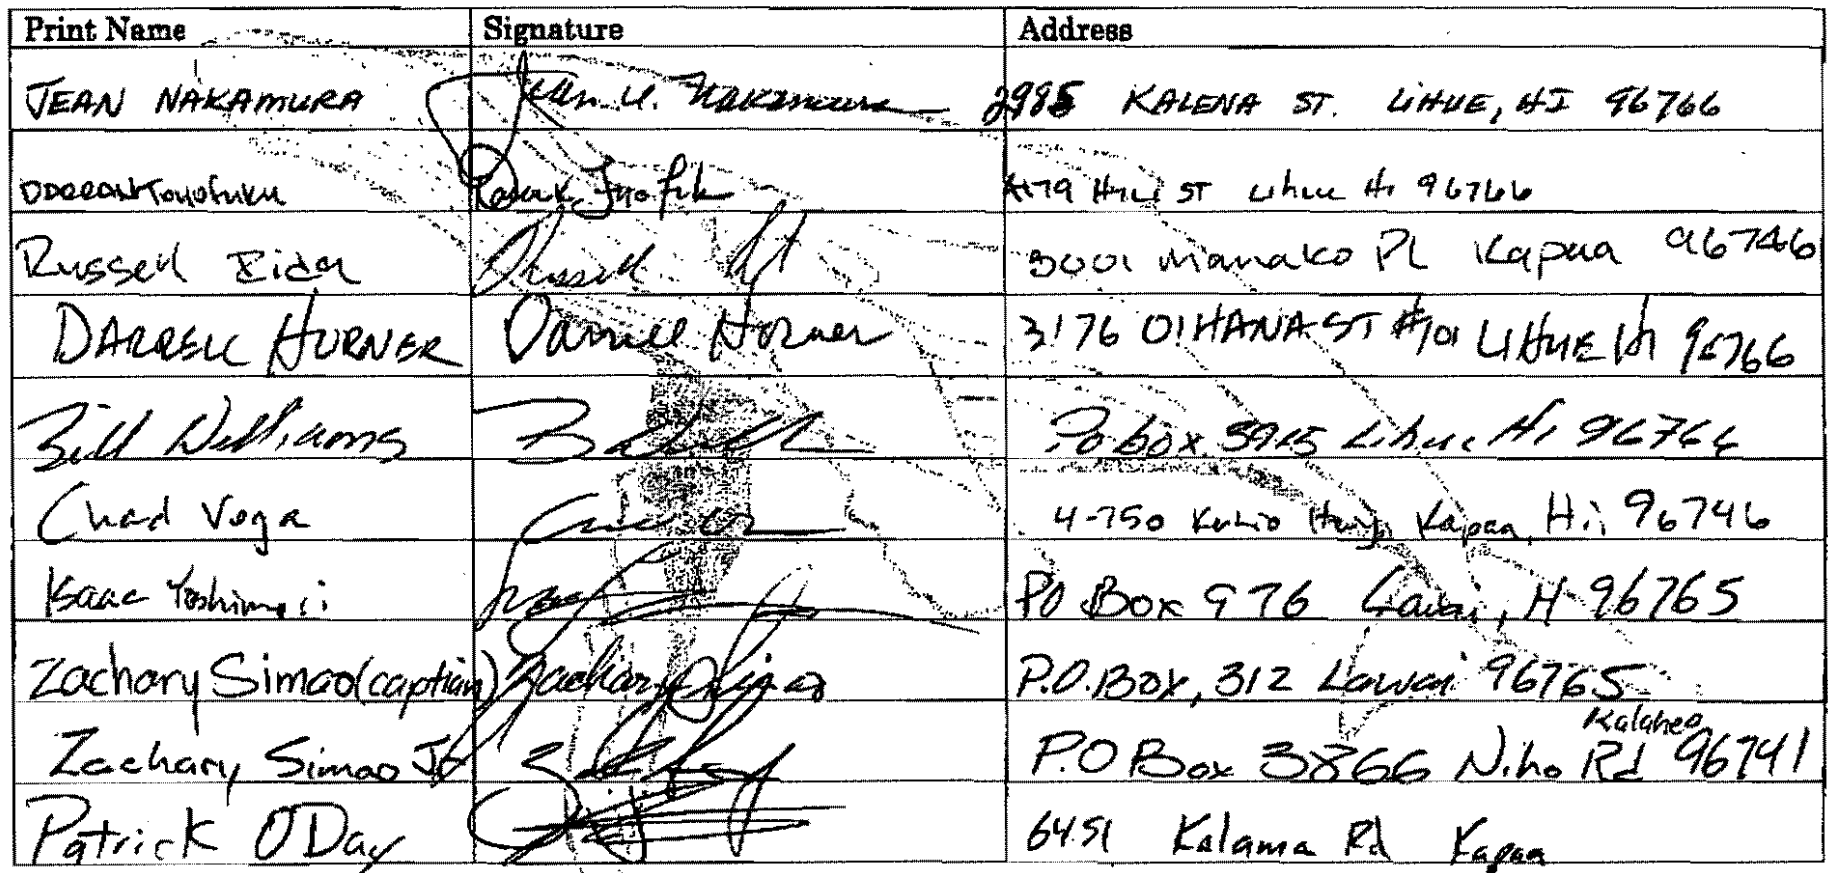 Print Name Signature Address
JEAN NAKAMURA Jean U. Nakamura 2985 KALENA ST. LIHUE, HI 96766
4179 Hili ST Lihue Hi 96766
Russell Eida Russell 3001 Manako PL Kapaa 96746
DARRELL HORNER Darrell Horner 3176 OIHANA ST #101 LIHUE HI 96766
Bill Williams P.O. box 3915 Lihue Hi 96766
Chad Vega 4-750 Kuhio Hwy, Kapaa, Hi, 96746
Isaac PO Box 976 Lawai, H 96765
Zachary Simao (captian) Zachary Simao P.O. Box, 312 Lawai 96765
Zachary Simao Jr P.O Box 3866 Niho Rd Kalaheo 96741
Patrick O'Day 6451 Kalama Rd Kapaa